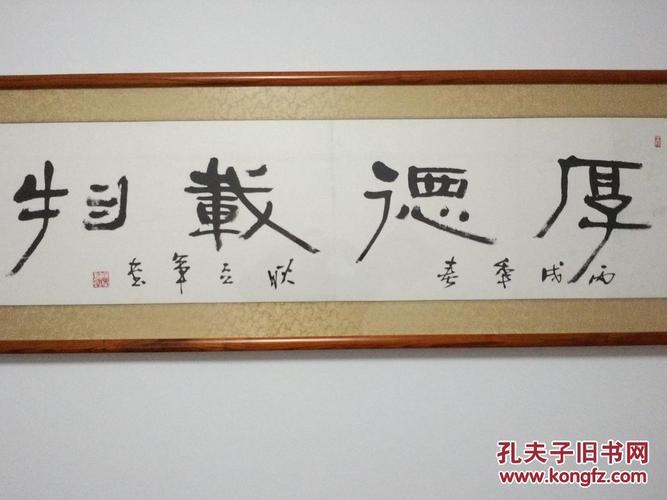 厚德載物
丙戌季春
立军书
孔夫子旧书网
www.kongfz.com